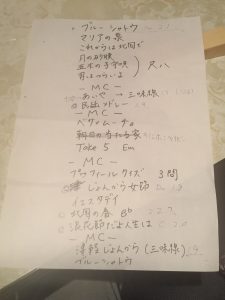 ・ブルーシャトウ
マリアの泉
これからは北国で
月の砂漠
五木の子守唄
宵まつらいよ
尺八
－ＭＣ－
あいや → 三味線
◎民謡メドレー
－ＭＣ－
ベサメムーチョ
Take 5 Em
－ＭＣ－
グレンフィールクイズ 3問
じょんから女節
イエスタデイ
◎北国の春 Bb
◎浪花節だよ人生は
－ＭＣ－
津軽じょんから（三味線）
ブルーシャトウ